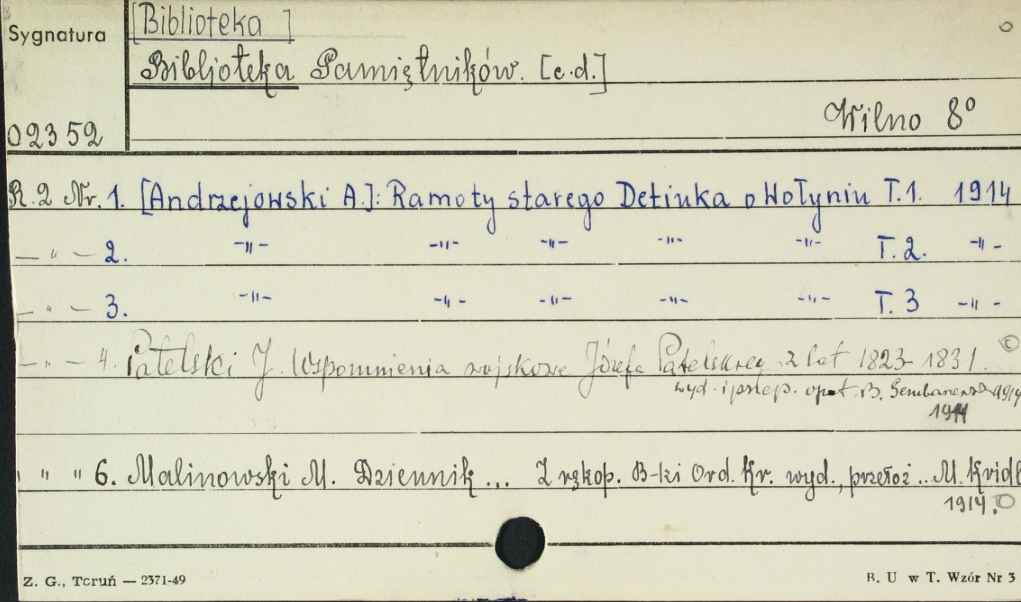 Sygnatura
[Biblioteka]
Bibljoteka Pamiętników. [c.d.]
Wilno 8°
02352
R.2 Nr. 1. [Andrzejowski A.]: Ramoty starego Detiuka o Wołyniu T.1. 1914
— " — 2. -"- -"- -"- -"- -"- T.2. -"-
— " — 3. -"- -"- -"- -"- -"- T.3 -"-
— " — 4. Patelski J. Wspomnienia wojskowe Józefa Patelskiego z lat 1823-1831. ©
wyd. i przep. opat. B. 1914
1914
" " " 6. Malinowski M. Dziennik... Z rękop. B-ki Ord. Kr. wyd., przełoż.. M. Kridl
1914.
Z. G., Toruń — 2371-49
B. U w T. Wzór Nr 3